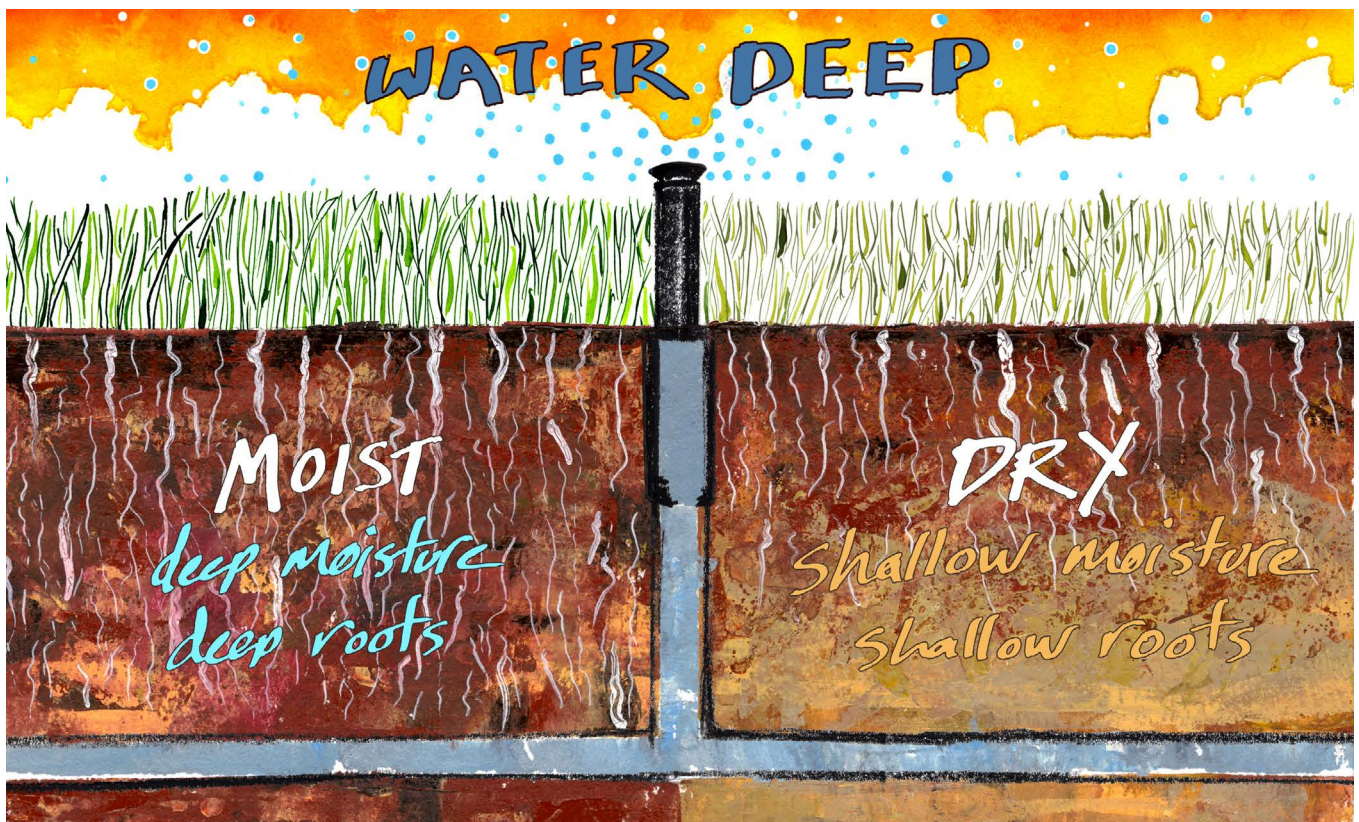 WATER DEEP
MOIST
deep moisture
deep roots
DRY
shallow moisture
shallow roots